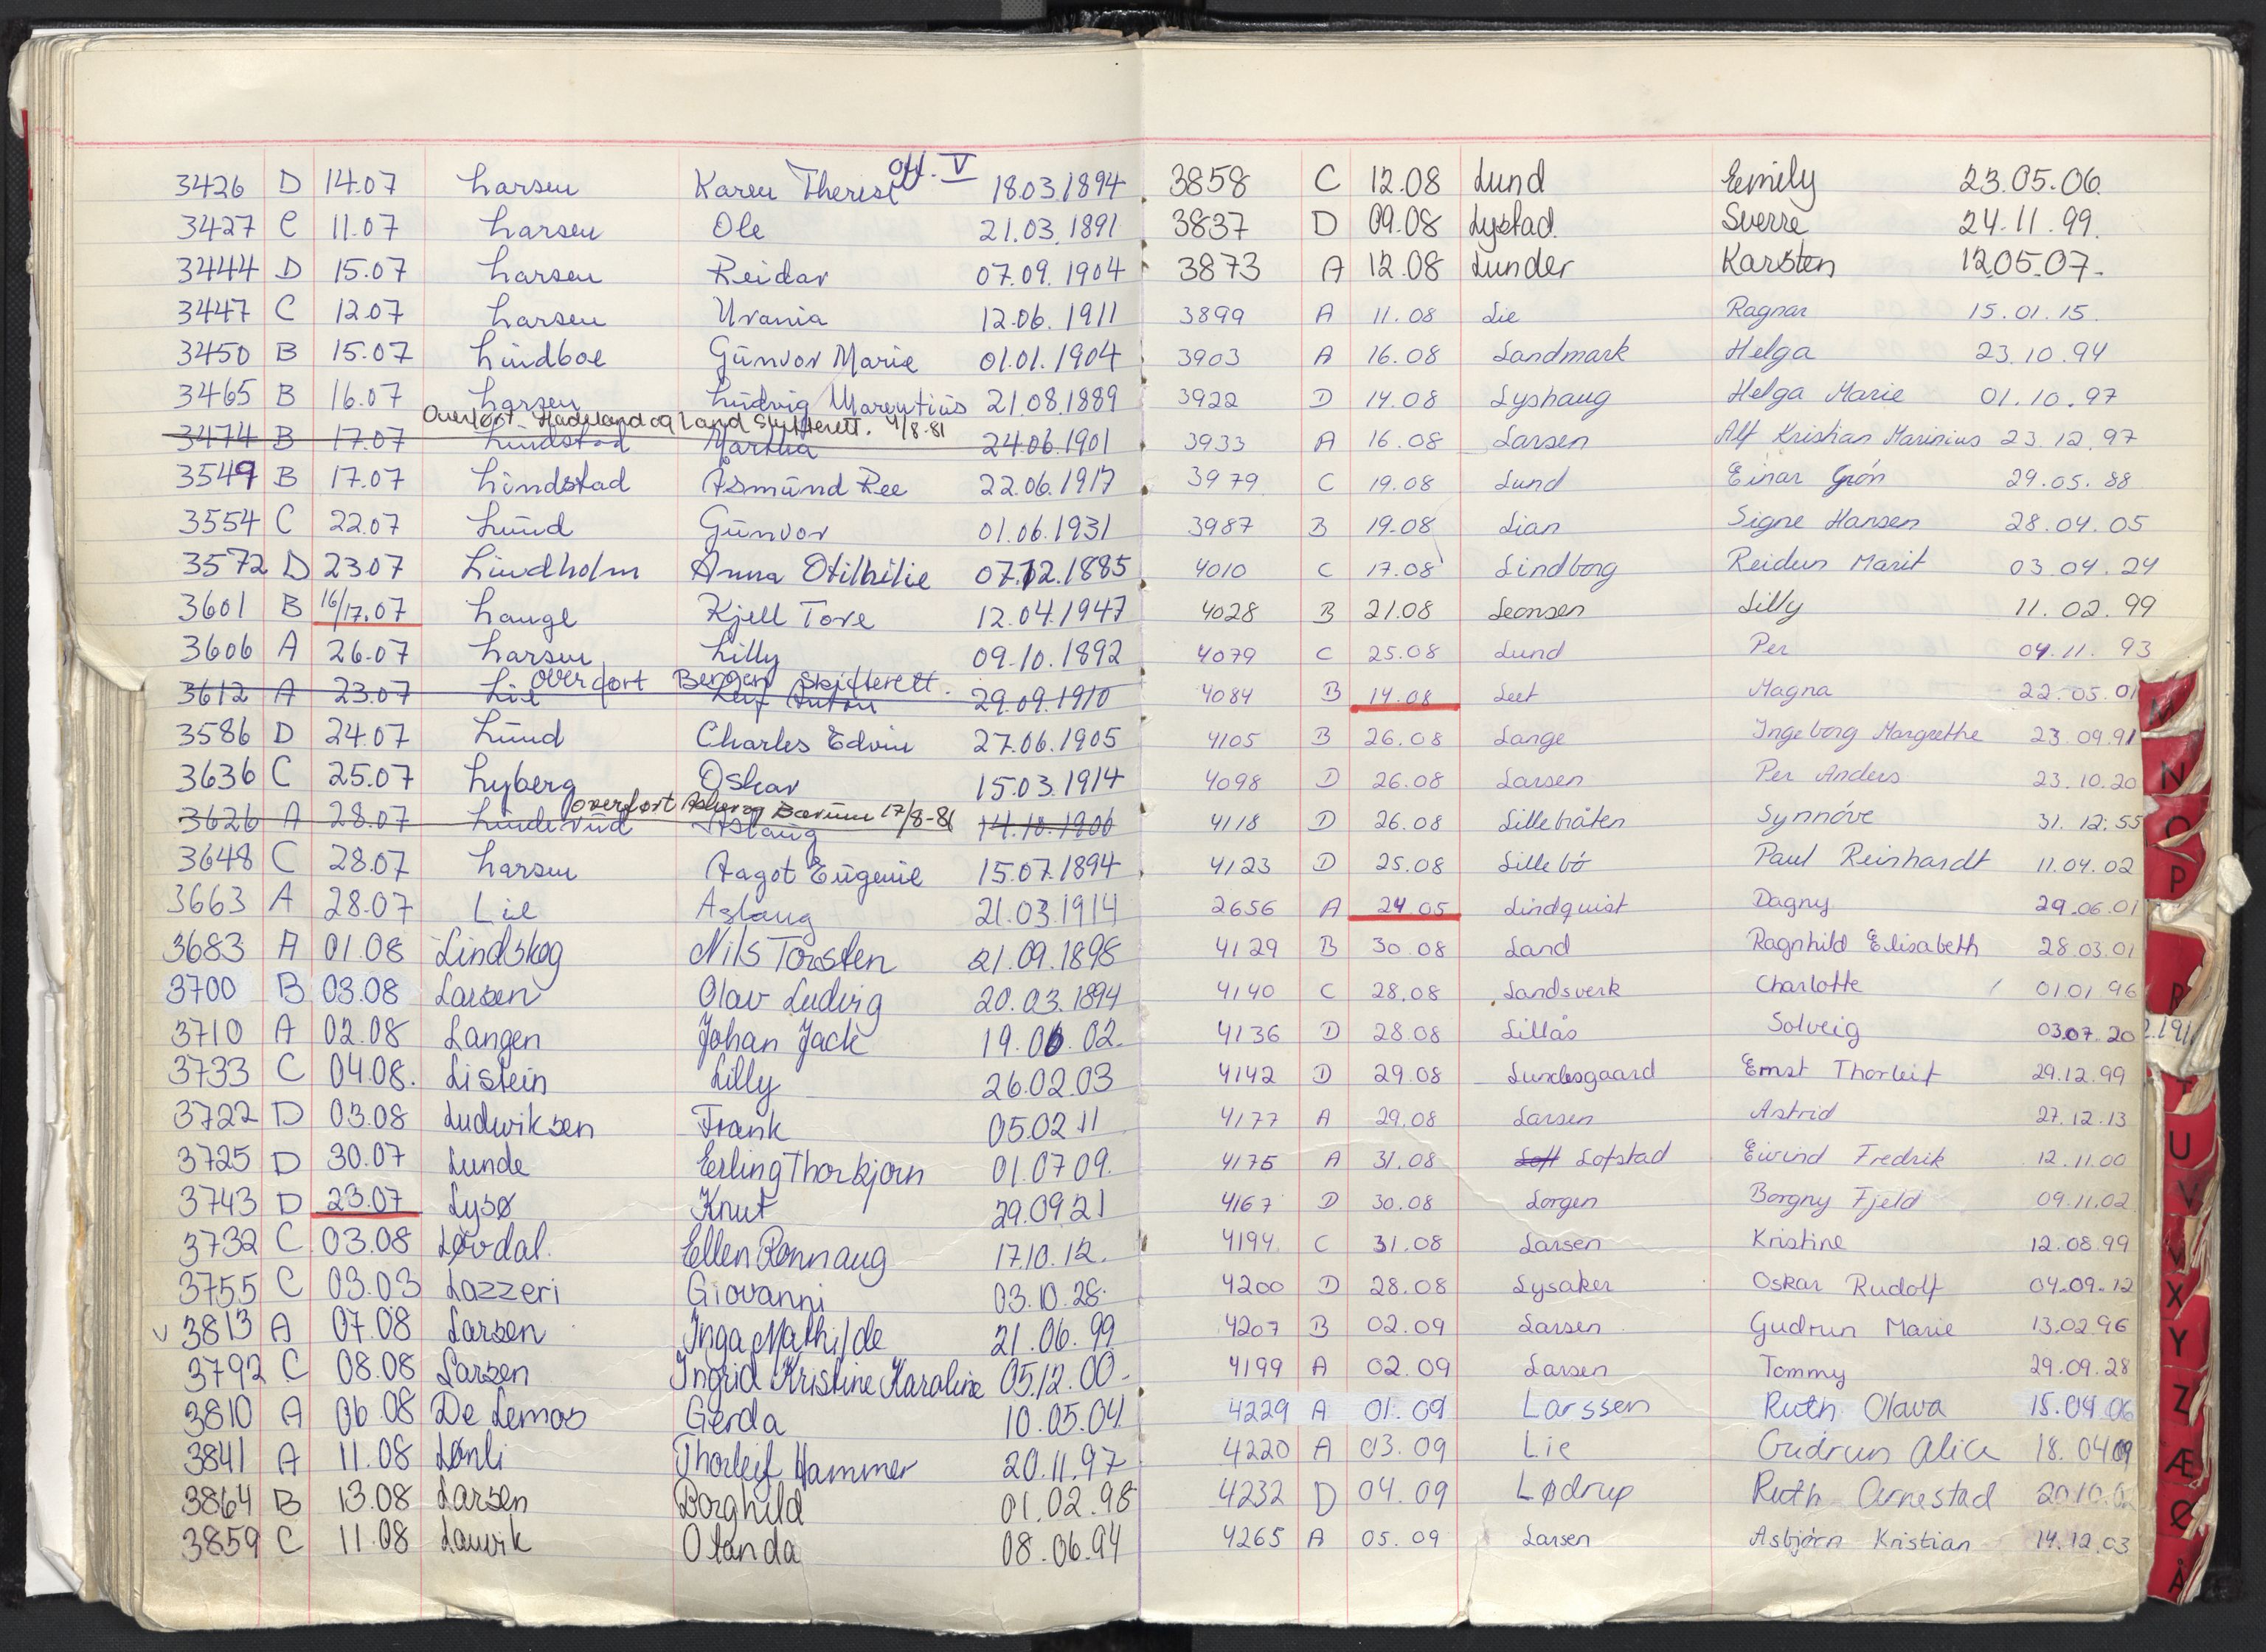 3426 D 14.07 Larsen Karen Therese off. V 18.03.1894
3427 C 11.07 Larsen Ole 21.03.1891
3444 D 15.07 Larsen Reidar 07.09.1904
3447 C 12.07 Larsen Urania 12.06.1911
3450 B 15.07 Lindboe Gunvor Marie 01.01.1904
3465 B 16.07 Larsen Ludvig Marentius 21.08.1889
Overført Hadeland og Land Skifterett. 4/8-81
3474 B 17.07 Lindstad Martha 24.06.1901
3549 B 17.07 Lindstad Åsmund Ree 22.06.1917
3554 C 22.07 Lund Gunvor 01.06.1931
3572 D 23.07 Lindholm Anna Otilhilie 07.12.1885
3601 B 16/17.07 Hauge Kjell Tore 12.04.1947
3606 A 26.07 Larsen Lilly 09.10.1892
overført Bergen Skifterett.
3612 A 23.07 Lie Leif Anton 29.09.1910
3586 D 24.07 Lund Charles Edvin 27.06.1905
3636 C 25.07 Lyberg Oskar 15.03.1914
overført Asker og Bærum 17/8-81
3626 A 28.07 Linderud Aslaug 14.10.1906
3648 C 28.07 Larsen Aagot Eugenie 15.07.1894
3663 A 28.07 Lie Aslaug 21.03.1914
3683 A 01.08 Lindskog Nils Torsten 21.09.1898
3700 B 03.08 Larsen Olav Ludvig 20.03.1894
3710 A 02.08 Langen Johan Jack 19.06.02.
3733 C 04.08. Listein Lilly 26.02.03
3722 D 03.08 Ludwiksen Frank 05.02.11
3725 D 30.07 Lunde Erling Thorbjørn 01.07 09.
3743 D 23.07 Lysø Knut 29.09 21
3732 C 03.08 Løvdal. Ellen Rønnaug 17.10.12.
3755 C 03.03 Lazzeri Giovanni 03.10.28.
v 3813 A 07.08 Larsen Inga Mathilde 21.06.99
3792 C 08.08 Larsen Ingrid Kristine Karoline 05.12.00-
3810 A 06.08 De Lemos Gerda 10.05.04
3841 A 11.08 Lønli Thorleif Hammer 20.11.97
3864 B 13.08 Larsen Borghild 01.02.98
3859 C 11.08 Lauvik Olanda 08.06.94
3858 C 12.08 Lund Emily 23.05.06.
3837 D 09.08 Lystad. Sverre 24.11.99.
3873 A 12.08 Lunder Karsten 12.05.07-
3899 A 11.08 Lie Ragnar 15.01.15.
3903 A 16.08 Landmark Helga 23.10.94
3922 D 14.08 Lyshaug Helga Marie 01.10.97
3933 A 16.08 Larsen Alf Kristian Marinius 23.12.97
3979 C 19.08 Lund Einar Grón 29.05.88
3987 B 19.08 Lian Signe Hansen 28.04.05
4010 C 17.08 Lindborg Reidun Marit 03.04.24
4028 B 21.08 Leonsen Lilly 11.02.99
4079 C 25.08 Lund Per 04.11.93
4084 B 14.08 Leet Magna 22.05.01
4105 B 26.08 Lange Ingeborg Margrethe 23.09.91
4098 D 26.08 Larsen Per Anders 23.10.20
4118 D 26.08 Lillebråten Synnóve 31.12.55
4123 D 25.08 Lillebó Paul Reinhardt 11.04.02
2656 A 24.05 Lindquist Dagny 29.06.01
4129 B 30.08 Land Ragnhild Elisabeth 28.03.01
4140 C 28.08 Landsverk Charlotte 01.01.96
4136 D 28.08 Lillås Solveig 03.07.20
4142 D 29.08 Lundesgaard Ernst Thorleif 29.12.99
4177 A 29.08 Larsen Astrid 27.12.13
4175 A 31.08 Loff Lofstad Eivind Fredrik 12.11.00
4167 D 30.08 Lorgen Borgny Fjeld 09.11.02
4194 C 31.08 Larsen Kristine 12.08.99
4200 D 28.08 Lysaker Oskar Rudolf 04.09.12
4207 B 02.09 Larsen Gudrun Marie 13.02.96
4199 A 02.09 Larsen Tommy 29.09.28
4229 A 01.09 Larssen Ruth Olava 15.04.06
4220 A 03.09 Lie Gudrun Alice 18.04.09
4232 D 04.09 Lødrup Ruth Arnestad
4265 A 05.09 Larsen Asbjørn Kristian 14.12.03
M
N
O
P
R
U
V
X
Y
Z
Æ
Ø
Å